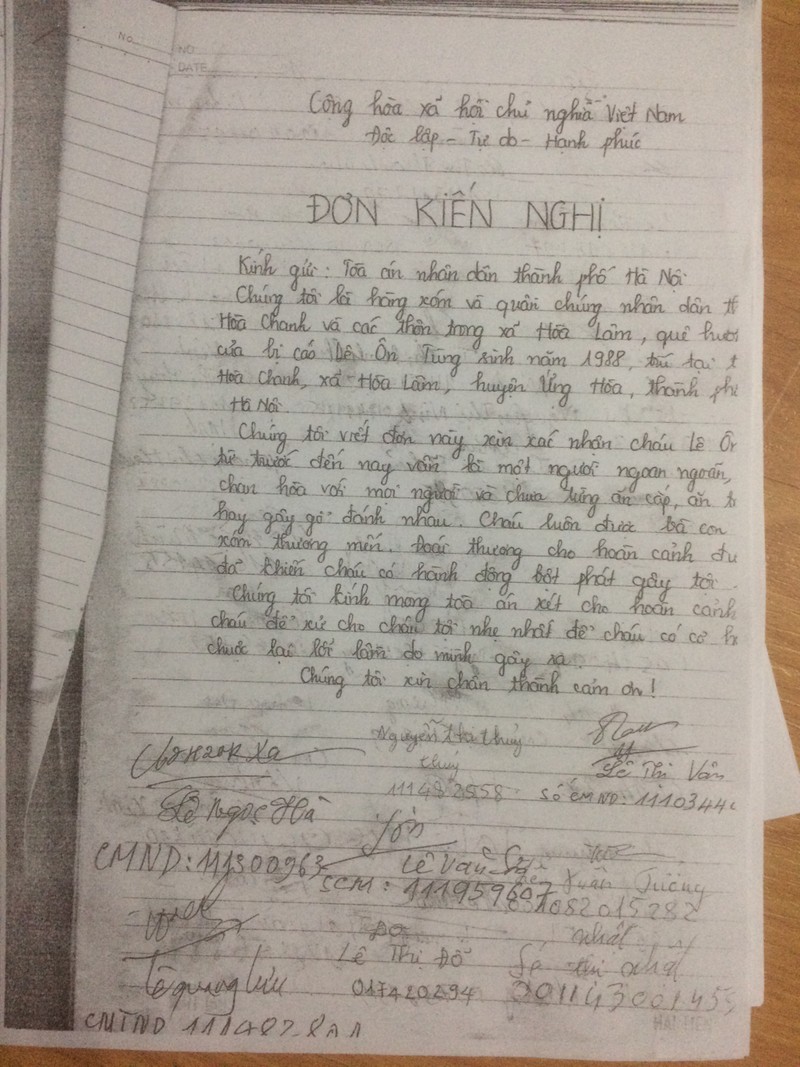 No.
NO
DATE
Cộng hòa xã hội chủ nghĩa Việt Nam
Độc lập - Tự do - Hạnh phúc
ĐƠN KIẾN NGHỊ
Kính gửi: Tòa án nhân dân thành phố Hà Nội
Chúng tôi là hàng xóm và quần chúng nhân dân th
Hòa Chanh và các thôn trong xã Hòa Lâm, quê hươ
của bị cáo Lê Ôn Tùng sinh năm 1988, trú tại t
Hòa Chanh, xã Hòa Lâm, huyện Ứng Hòa, thành ph
Hà Nội.
Chúng tôi viết đơn này xin xác nhận cháu Lê Ôn
từ trước đến nay vẫn là một người ngoan ngoãn,
chan hòa với mọi người và chưa từng ăn cắp, ăn t
hay gây gổ đánh nhau. Cháu luôn được bà con
xóm thương mến. Đoái thương cho hoàn cảnh đư
đã khiến cháu có hành động bột phát gây tội.
Chúng tôi kính mong toà án xét cho hoàn cảnh
cháu để xử cho cháu tội nhẹ nhất để cháu có cơ h
chuộc lại lỗi lầm do mình gây ra.
Chúng tôi xin chân thành cảm ơn!
Nguyễn thị thuỷ
thuỷ
Lê Thị Vân
Số CMND: 1110344
Lê Ngọc Hà
CMND: 111300963
Lê Văn
SCM: 111959607
Xuân Trường
001082015282
Lê quang Lưu
Lê Thị Đỗ
017420294
nhất
thị nhất
001143001453
CMTND